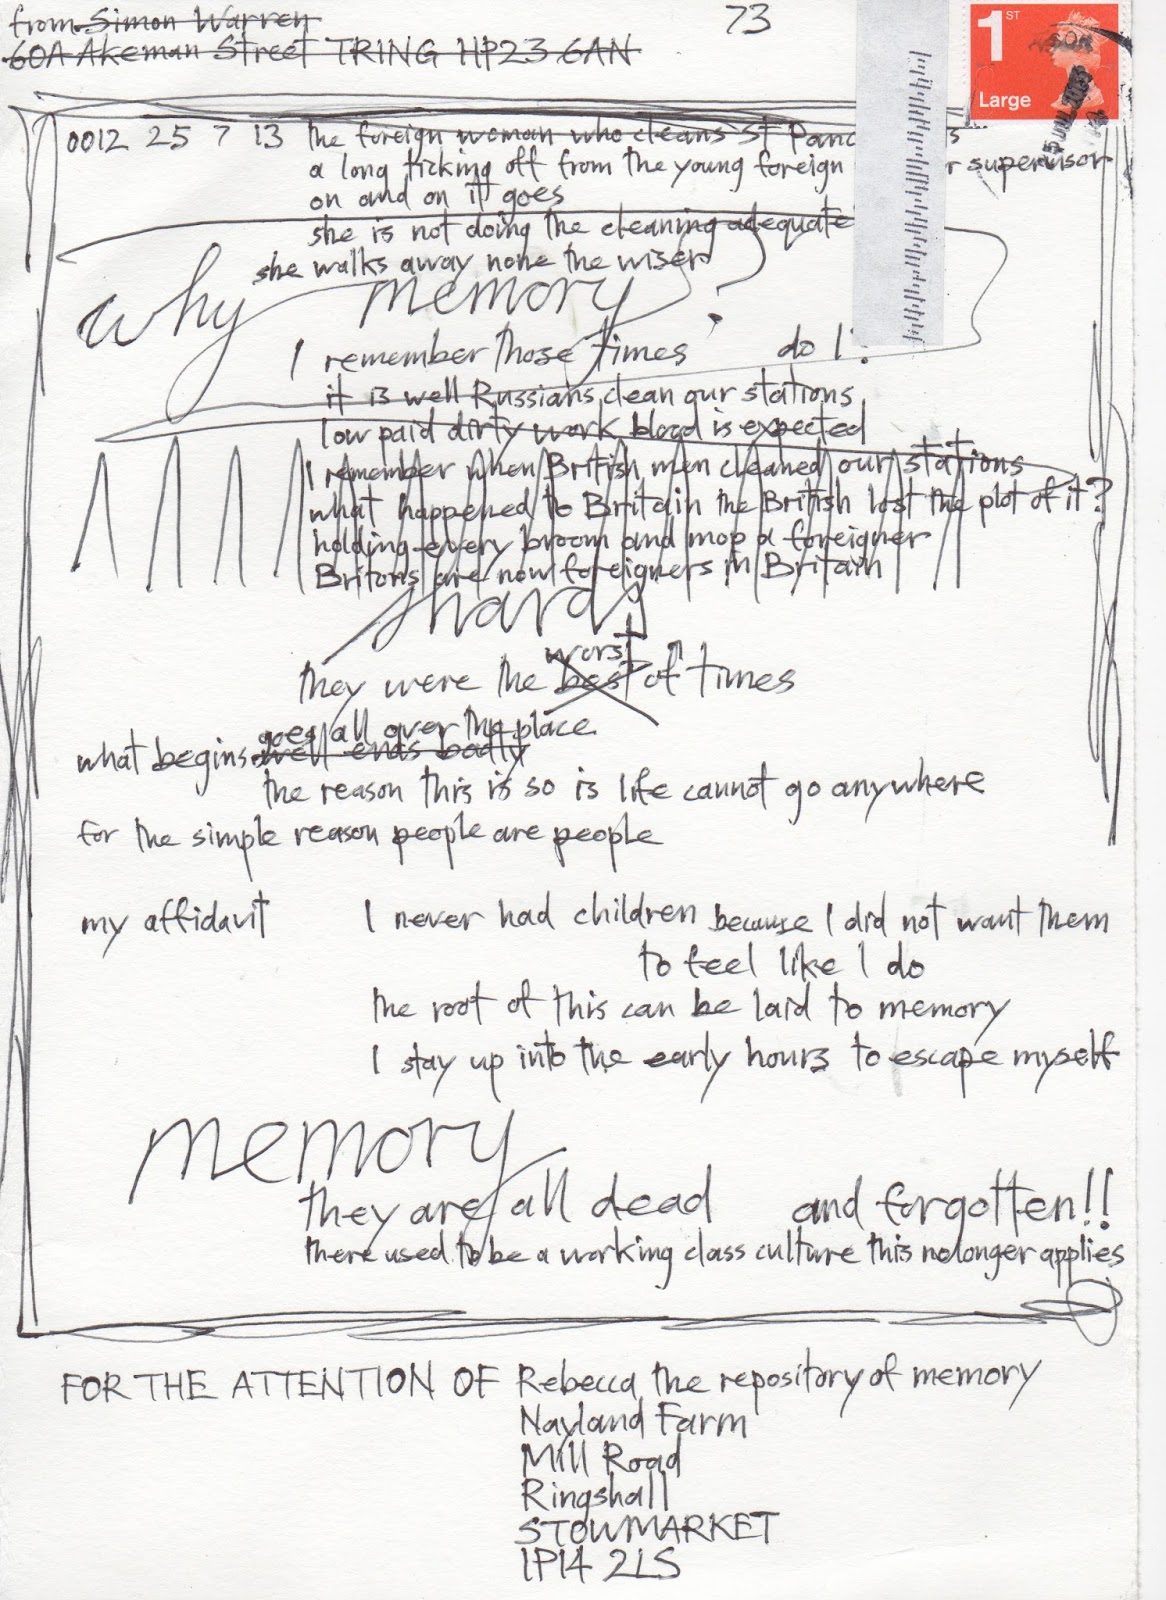 from Simon Warren
60A Akeman Street TRING HP23 6AN
73
1ST
Large
0012 25 7 13 the foreign woman who cleans St Panc s
a long ticking off from the young foreign r supervisor
on and on it goes
she is not doing the cleaning adequate
she walks away none the wiser
why memory ?
I remember those times do I?
it is well Russians clean our stations
low paid dirty work blood is expected
I remember when British men cleaned our stations
what happened to Britain the British lost the plot of it?
holding every broom and mop a foreigner
Britons are now foreigners in Britain
shards
worst
they were the best of times
goes all over the place
what begins well ends badly
the reason this is so is life cannot go anywhere
for the simple reason people are people
my affidavit I never had children because I did not want them
to feel like I do
the root of this can be laid to memory
I stay up into the early hours to escape myself
memory
they are all dead and forgotten!!
there used to be a working class culture this no longer applies
FOR THE ATTENTION OF Rebecca the repository of memory
Nayland Farm
Mill Road
Ringshall
STOWMARKET
IP14 2LS